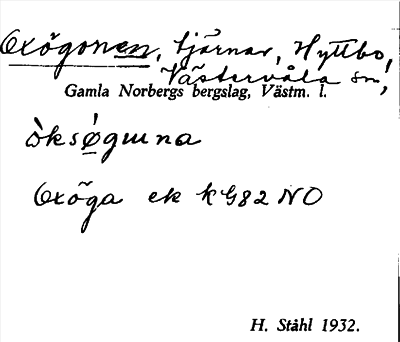 Oxögonen, tjärnar, Hyttbo,
Västervåla sn,
Gamla Norbergs bergslag, Västm. l.
òksǿgɯna
Oxöga ek KG82 NO
H. Ståhl 1932.